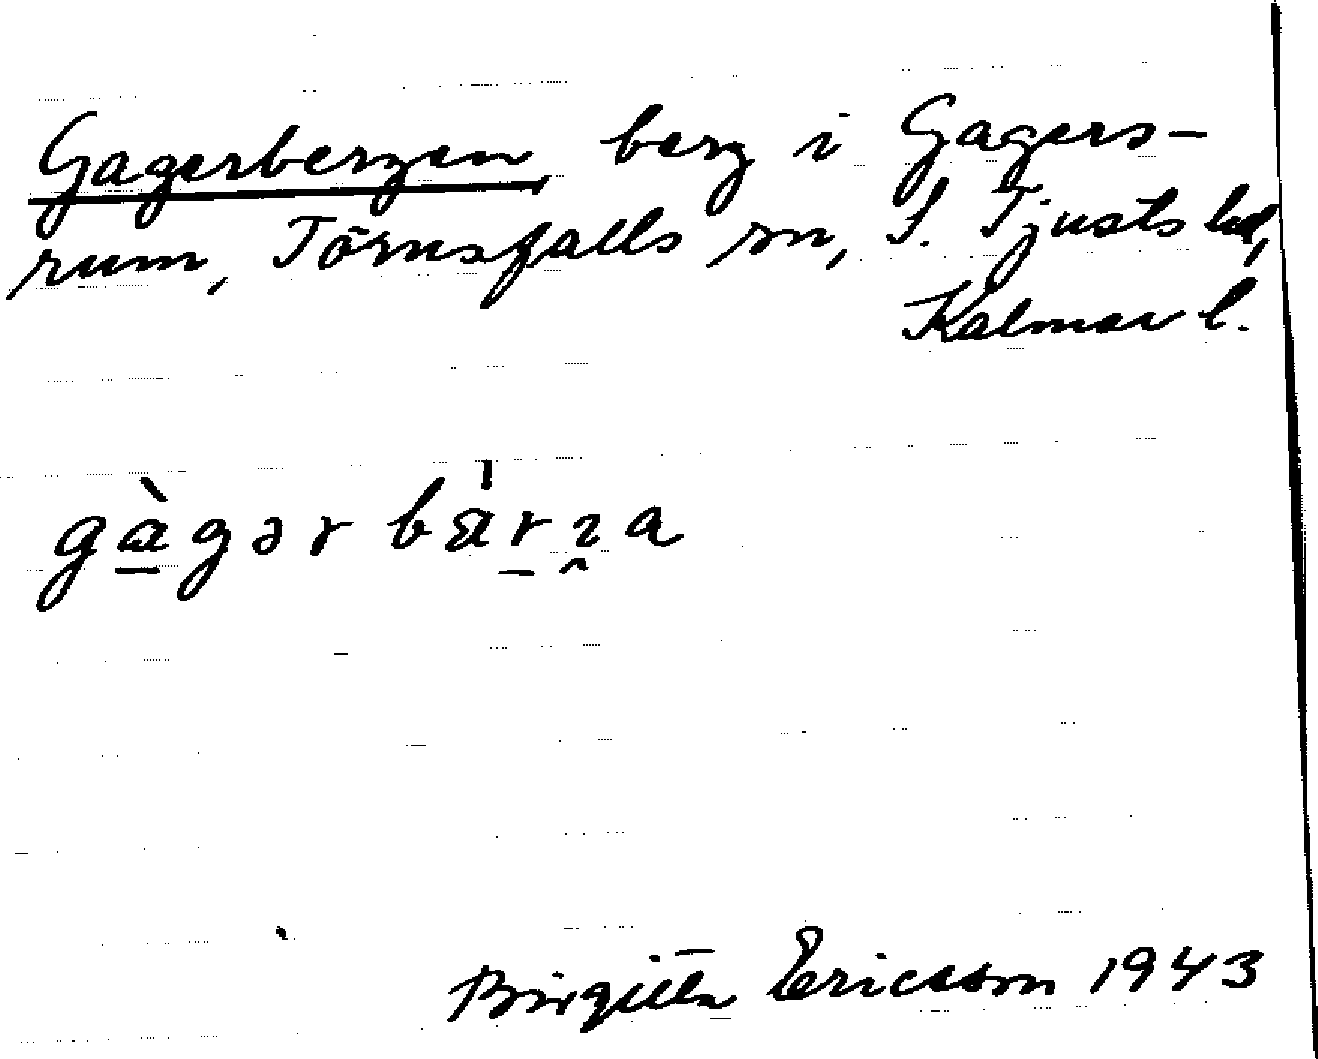 Gagerbergen, berg i Gagers-
rum, Törnsfalls sn, S. Tjusts hd,
Kalmar l.
gàgər bǽrɿa
Birgitta Ericsson 1943